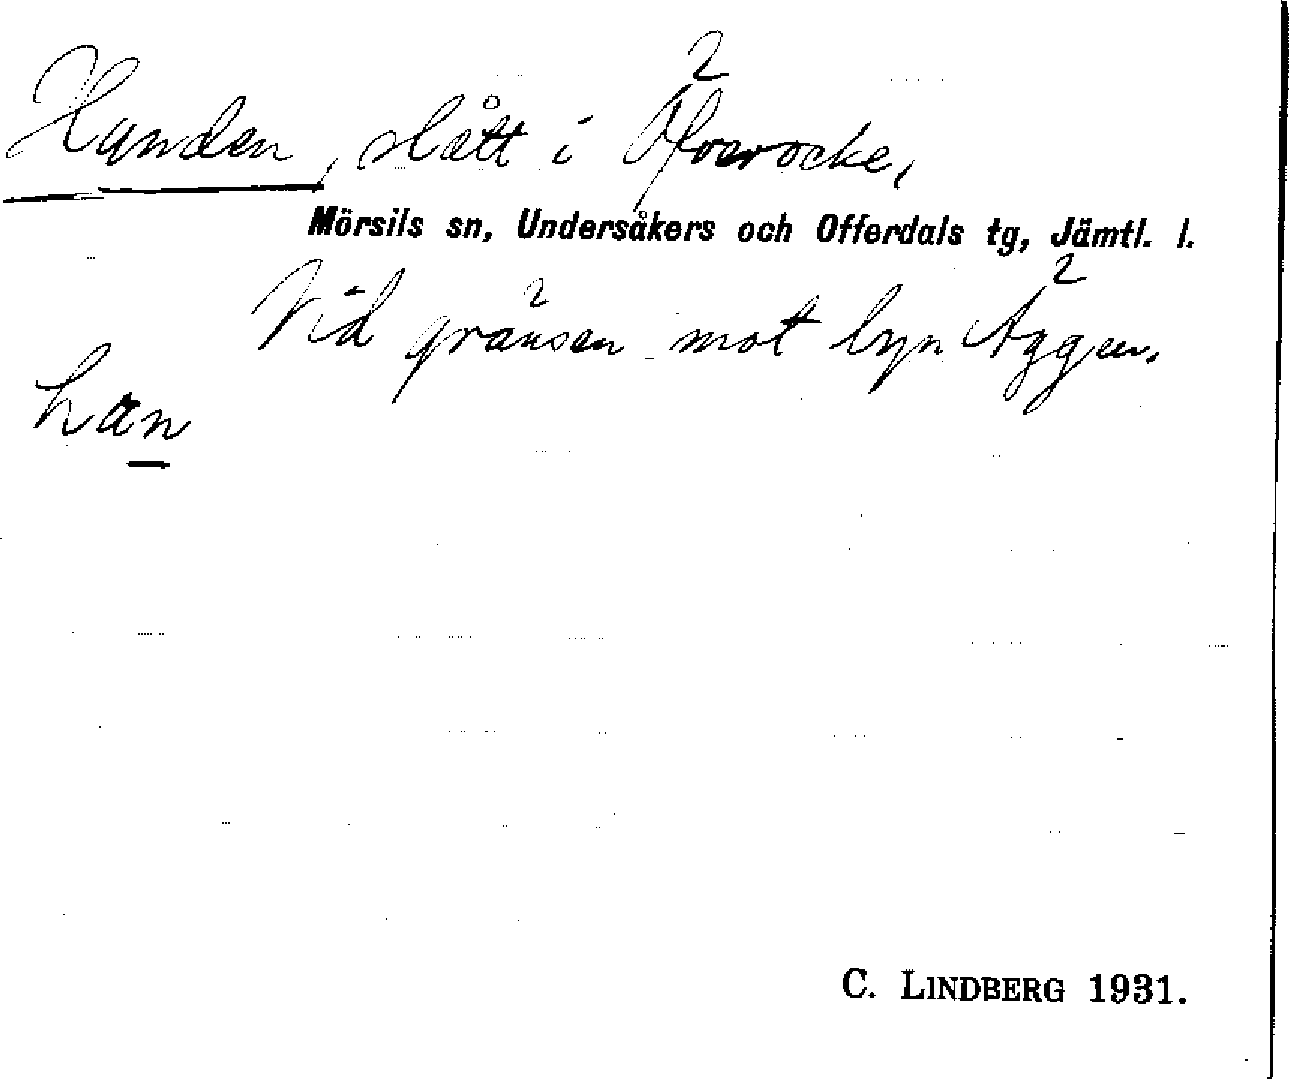 Handen, slått i Öfverocke,
Mörsils sn, Undersåkers och Offerdals tg, Jämtl. l.
Vid gränsen mot byn Äggen.
han
C. LINDBERG 1931.